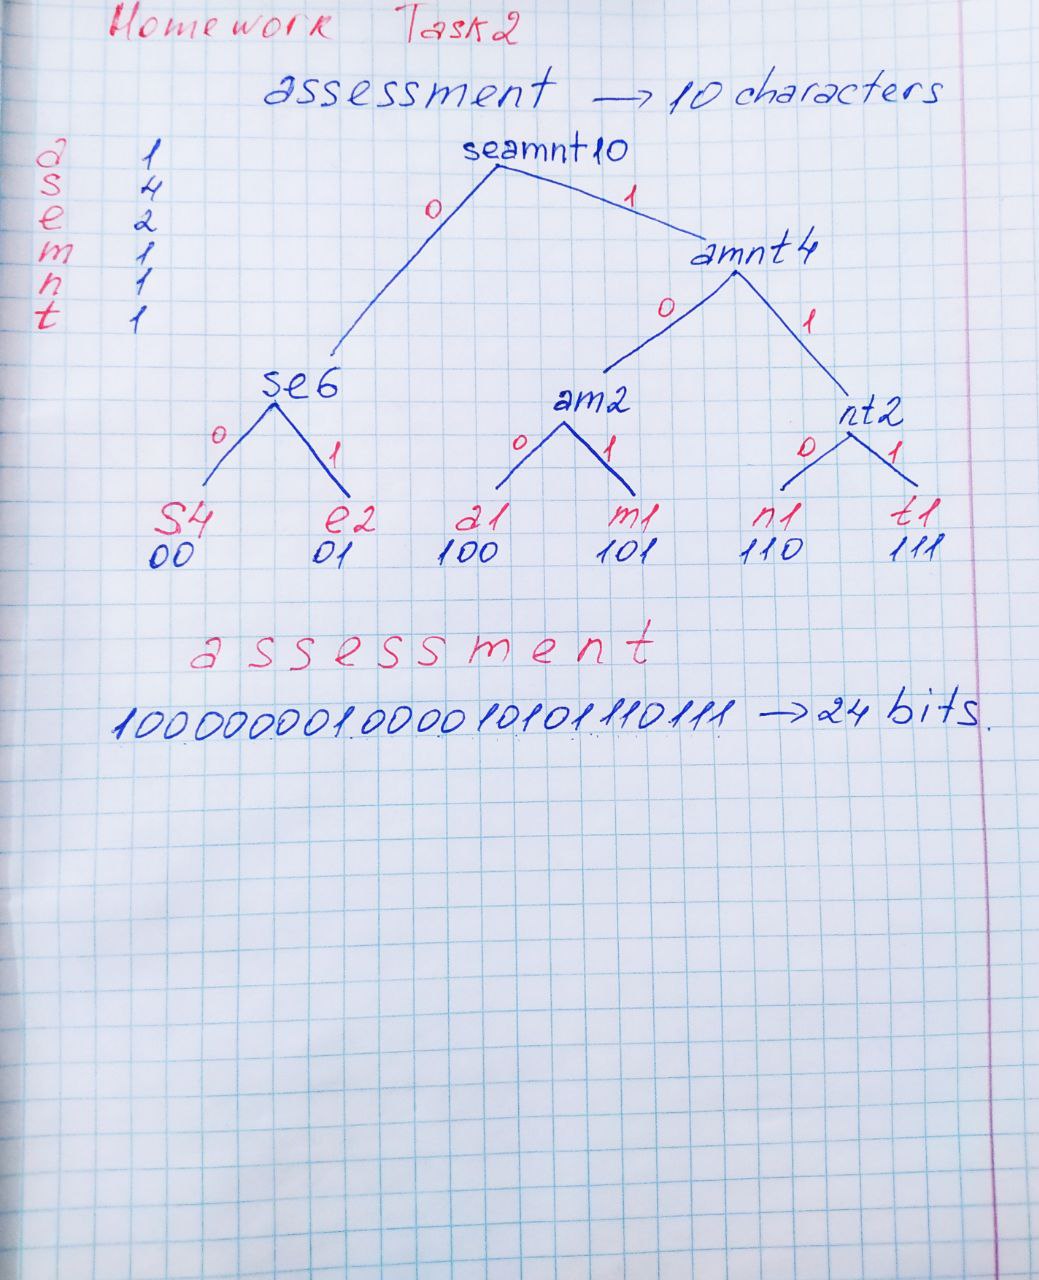 Homework Task2
assessment → 10 characters
seamnt10
a 1
s 4
e 2
m 1
n 1
t 1
0 1
amnt4
0 1
se6 am2 nt2
0 1 0 1 0 1
S4 e2 a1 m1 n1 t1
00 01 100 101 110 111
assessment
100000001000010101110111 → 24 bits.